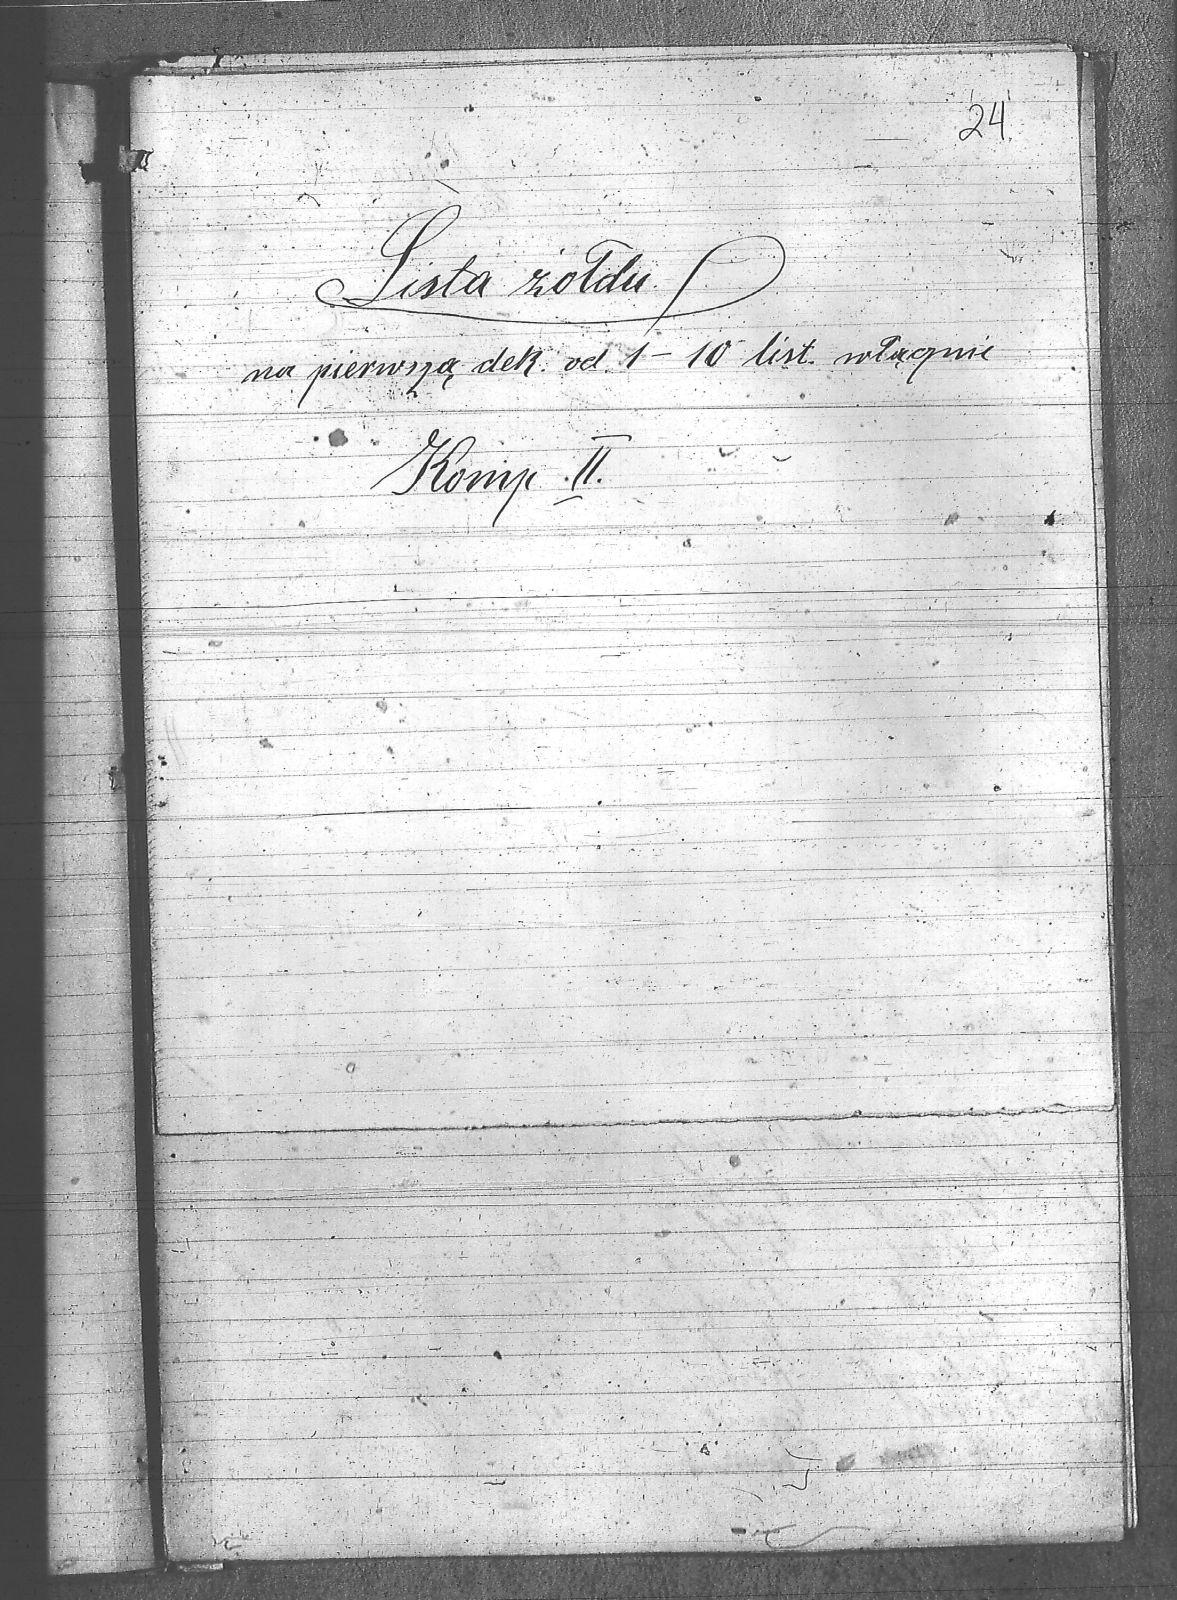 24
Lista żołdu
na pierwszą dek. od 1 – 10 list. włącznie
Komp. II.